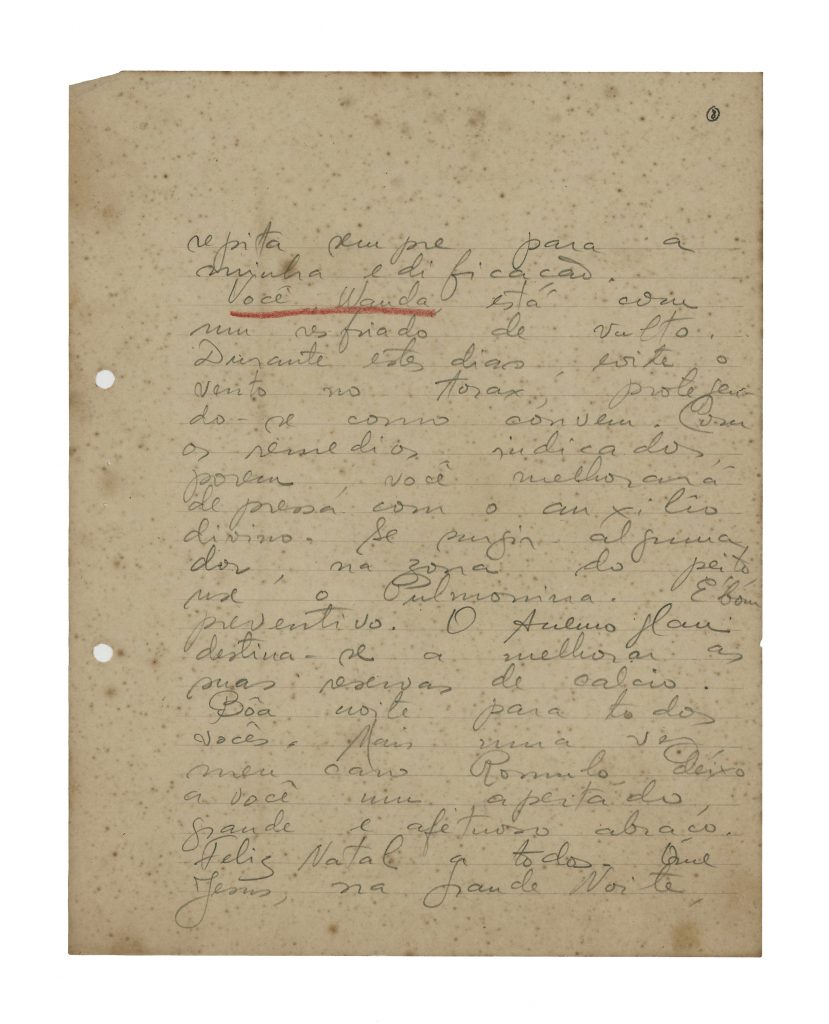 ②
repita sempre para a
minha edificação.
Você, Wanda, está com
um resfriado de vulto.
Durante estes dias, evite o
vento no torax, protegen-
do-se como convem. Com
os remedios indicados,
porem, você melhorará
depressa com o auxilio
divino. Se surgir alguma
dor, na zona do peito
use o Pulmonina. É bom
preventivo. O
destina-se a melhorar as
suas reservas de calcio.
Bôa noite para todos
vocês. Mais uma vez
meu caro Romulo deixo
a você um apertado,
grande e afetuoso abraço.
Feliz Natal a todos. Que
Jesus, na grande Noite,